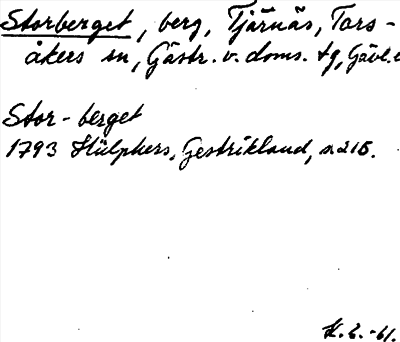 Storberget, berg, Tjärnäs, Tors-
åkers sn, Gästr. v. doms. tg, Gävl.
Stor-berget
1793 Hülphers, Gestrikland, s. 215.
K. E. -61.